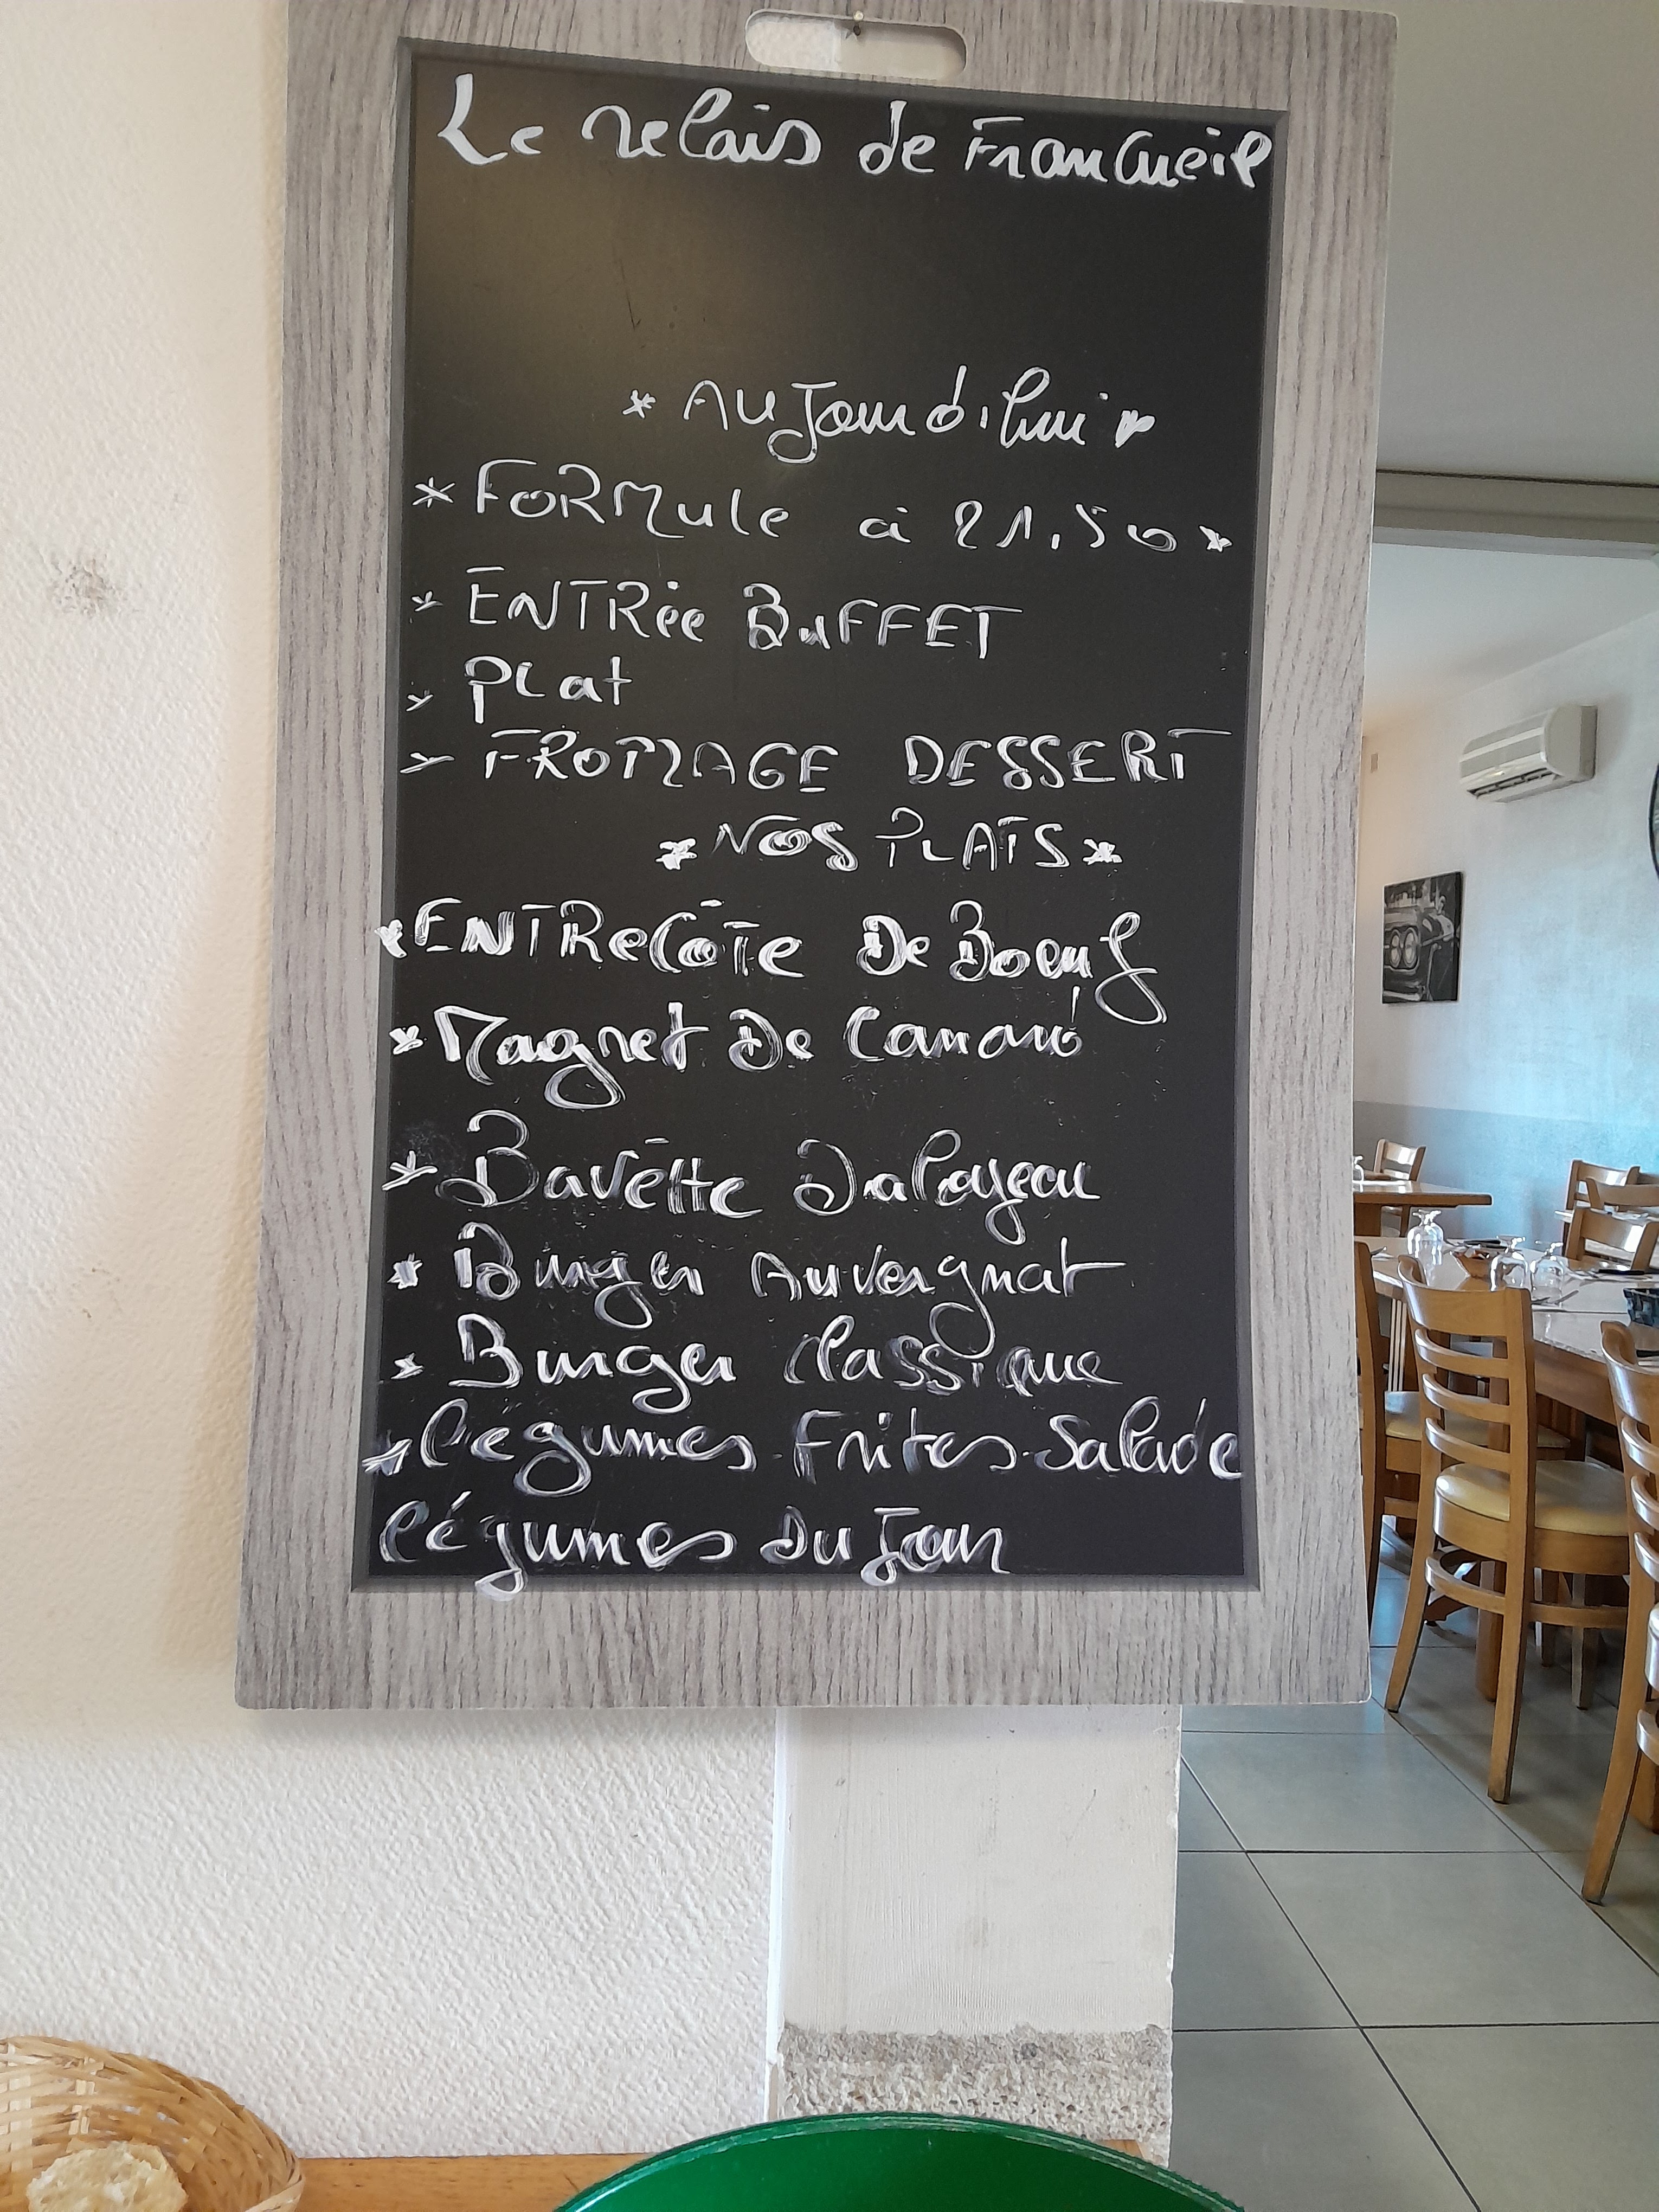 Le relais de Francueil
* AuJourd'hui *
* FORMule à 21.50 *
* ENTRée BuFFET
* PLat
* FROMAGE DESSERT
* NOS PLATS *
* ENTReCôTe De Boeuf
* Magret De Canard
* Bavette Daloyeau
* Burger Auvergnat
* Burger Classique
* légumes - Frites - Salade
légumes Du Jour